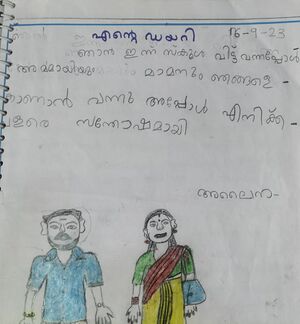 എന്റെ ഡയറി 16-9-23
ഞാൻ ഇന്ന് സ്കൂൾ വിട്ട് വന്നപ്പോൾ
അമ്മായിയും മാമനും ഞങ്ങളെ -
കാണാൻ വന്നു അപ്പോൾ എനിക്ക് -
വളരെ സന്തോഷമായി
അലൈന -